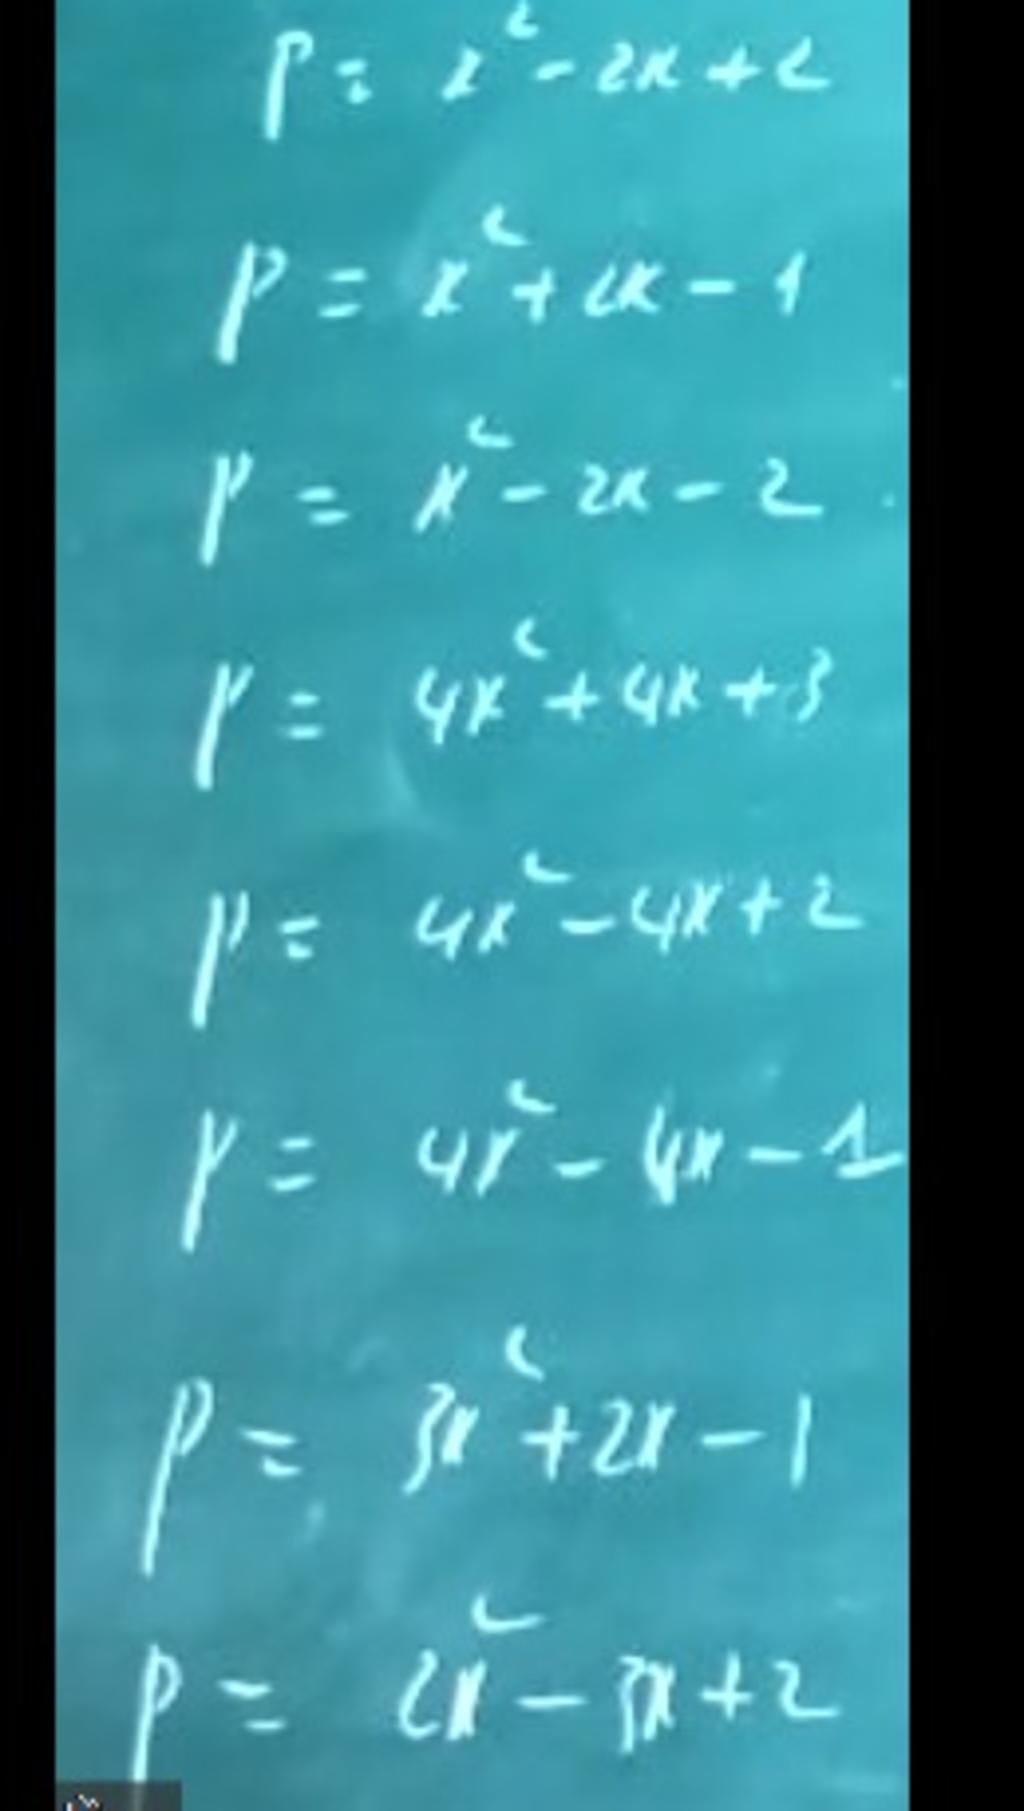 P = x² - 2x + 2
P = x² + 2x - 1
P = x² - 2x - 2
P = 4x² + 4x + 3
P = 4x² - 4x + 2
P = 4x² - 4x - 1
P = 3x² + 2x - 1
P = 2x² - 3x + 2